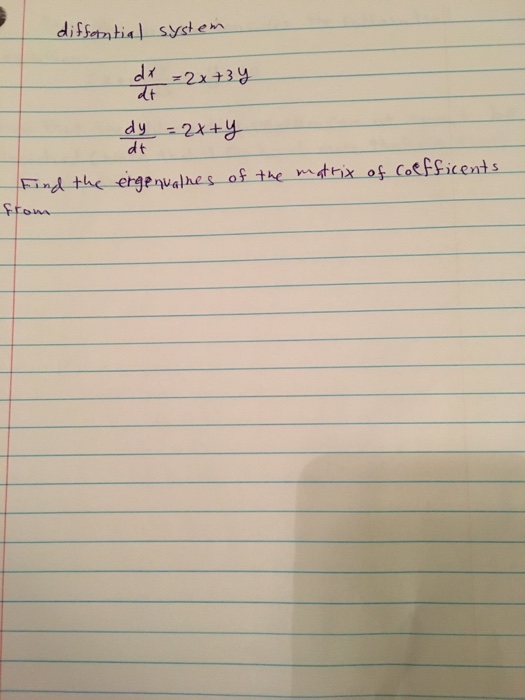 differntial system
dx/dt = 2x + 3y
dy/dt = 2x + y
Find the ergenvalnes of the matrix of coefficents
from